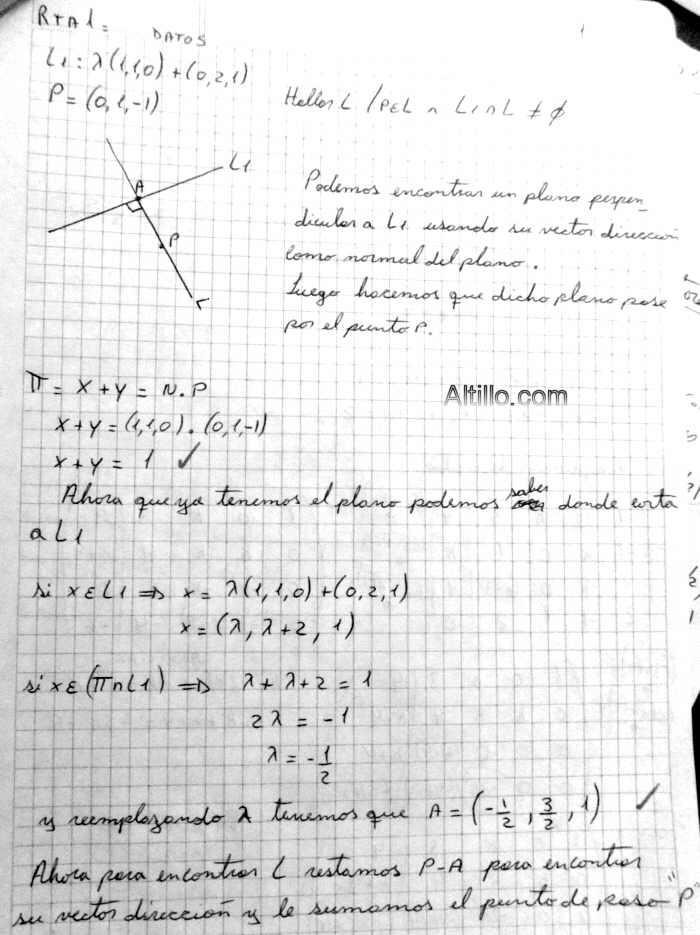 RTA 1 =
DATOS
1
L1 : λ(1,1,0) + (0,2,1)
P = (0,1,-1)
Hallar L / P∈L ∧ L1∩L ≠ ∅
L1
A
P
Podemos encontrar un plano perpen_
dicular a L1 usando su vector dirección
como normal del plano.
Luego hacemos que dicho plano pase
por el punto P.
π = x + y = N.P
Altillo.com
x + y = (1,1,0) . (0,1,-1)
x + y = 1 ✓
Ahora que ya tenemos el plano podemos saber donde corta
a L1
si x ∈ L1 ⇒ x = λ(1,1,0) + (0,2,1)
x = (λ, λ+2, 1)
si x ∈ (π∩L1) ⇒ λ + λ + 2 = 1
2λ = -1
λ = -1/2
y reemplazando λ tenemos que A = (-1/2, 3/2, 1) ✓
Ahora para encontrar L restamos P-A para encontrar
su vector dirección y le sumamos el punto de paso "P"